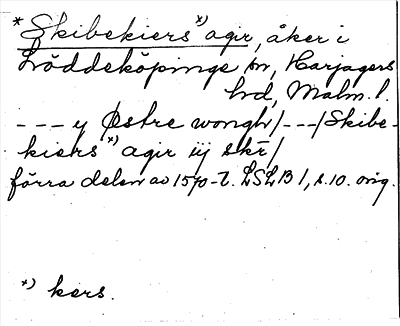 * Skibekiers*) agir, åker i
Löddeköpinge sn, Harjagers
hd, Malm. l.
--- y Østre wongh/---/Skibe-
kiers*) agir iij skr/
förra delen av 1570-t. LSLB 1, s. 10. orig.
*) kers.